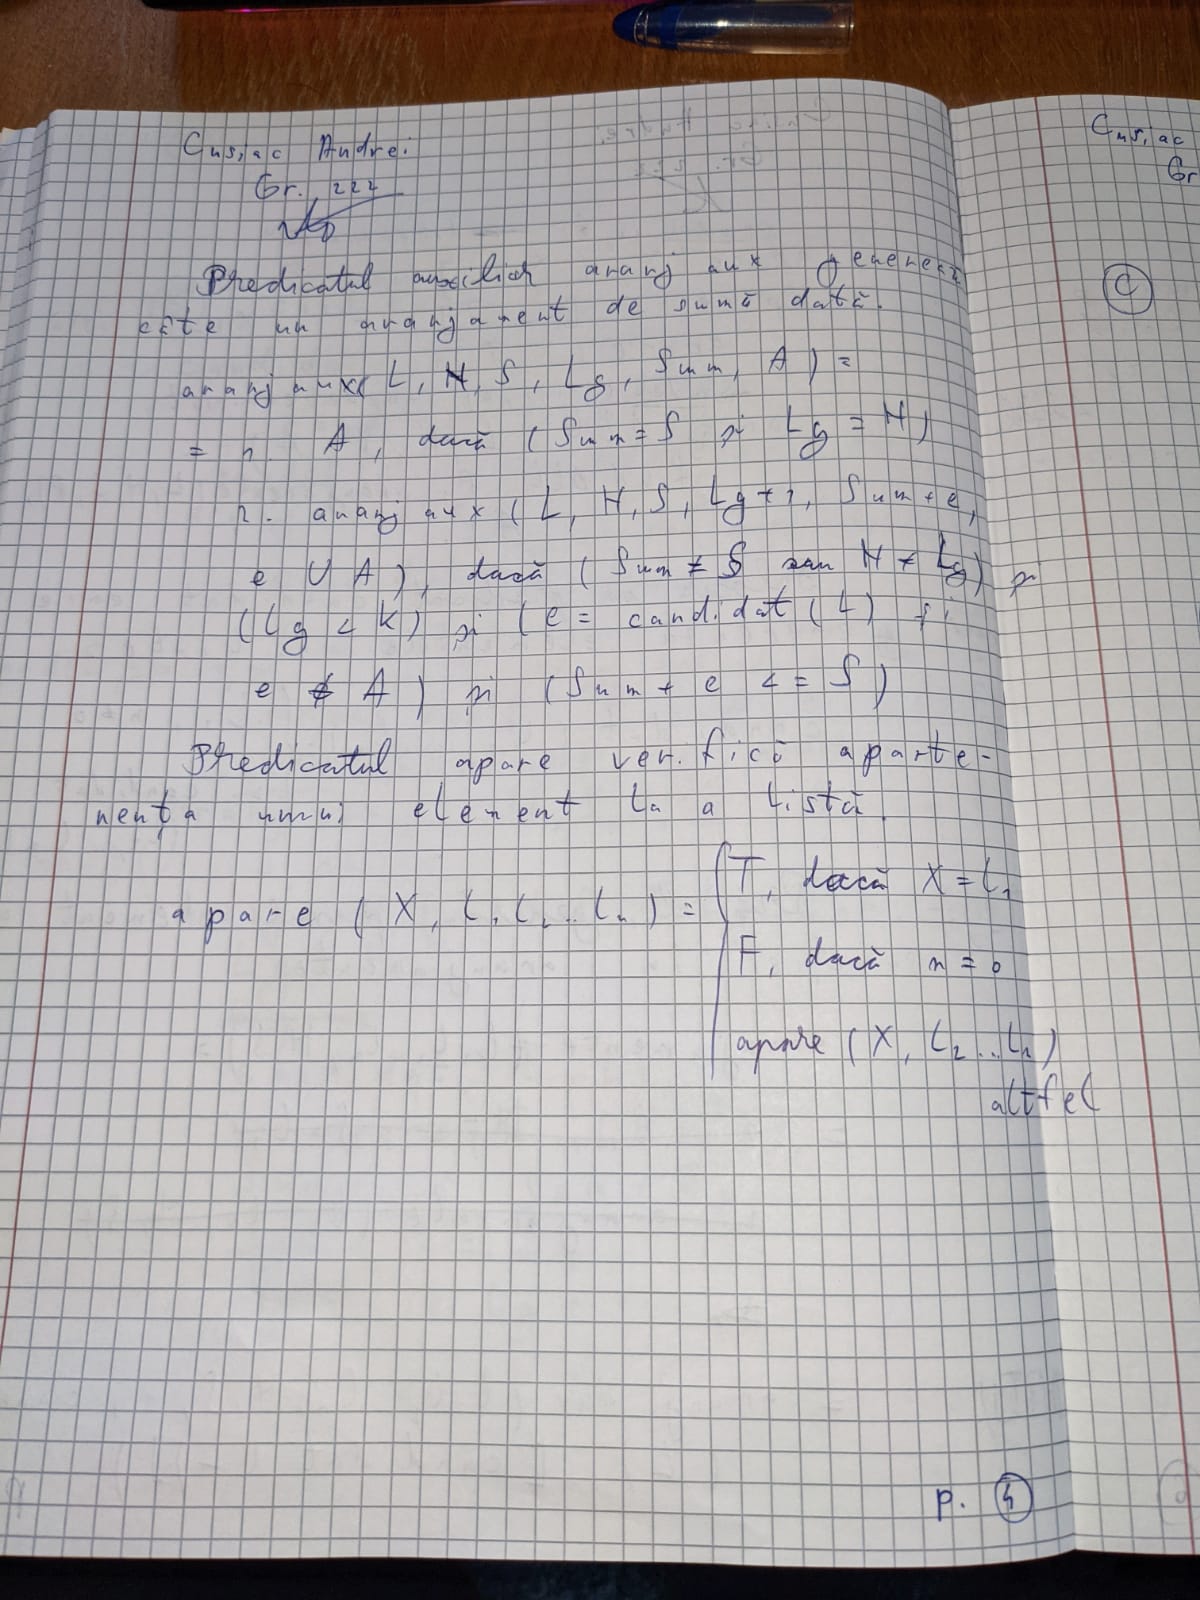 Cusiac Andrei
Gr. 222
Predicatul auxiliar aranjaux generează
câte un aranjament de sumă dată.
aranjaux(L, N, S, Lg, Sum, A) =
= 1. A, dacă (Sum = S și Lg = N)
2. aranjaux(L, N, S, Lg+1, Sum+e,
e ∪ A), dacă (Sum ≠ S sau N ≠ Lg) și
(Lg < K) și (e = candidat(L) și
e ∉ A) și (Sum + e <= S)
Predicatul apare verifică aparte-
nența unui element la o listă.
apare (X, L₁L₂...Lₙ) = { T, dacă X = L₁
F, dacă n = 0
apare (X, L₂...Lₙ)
altfel
p. 4
Cusiac
Gr